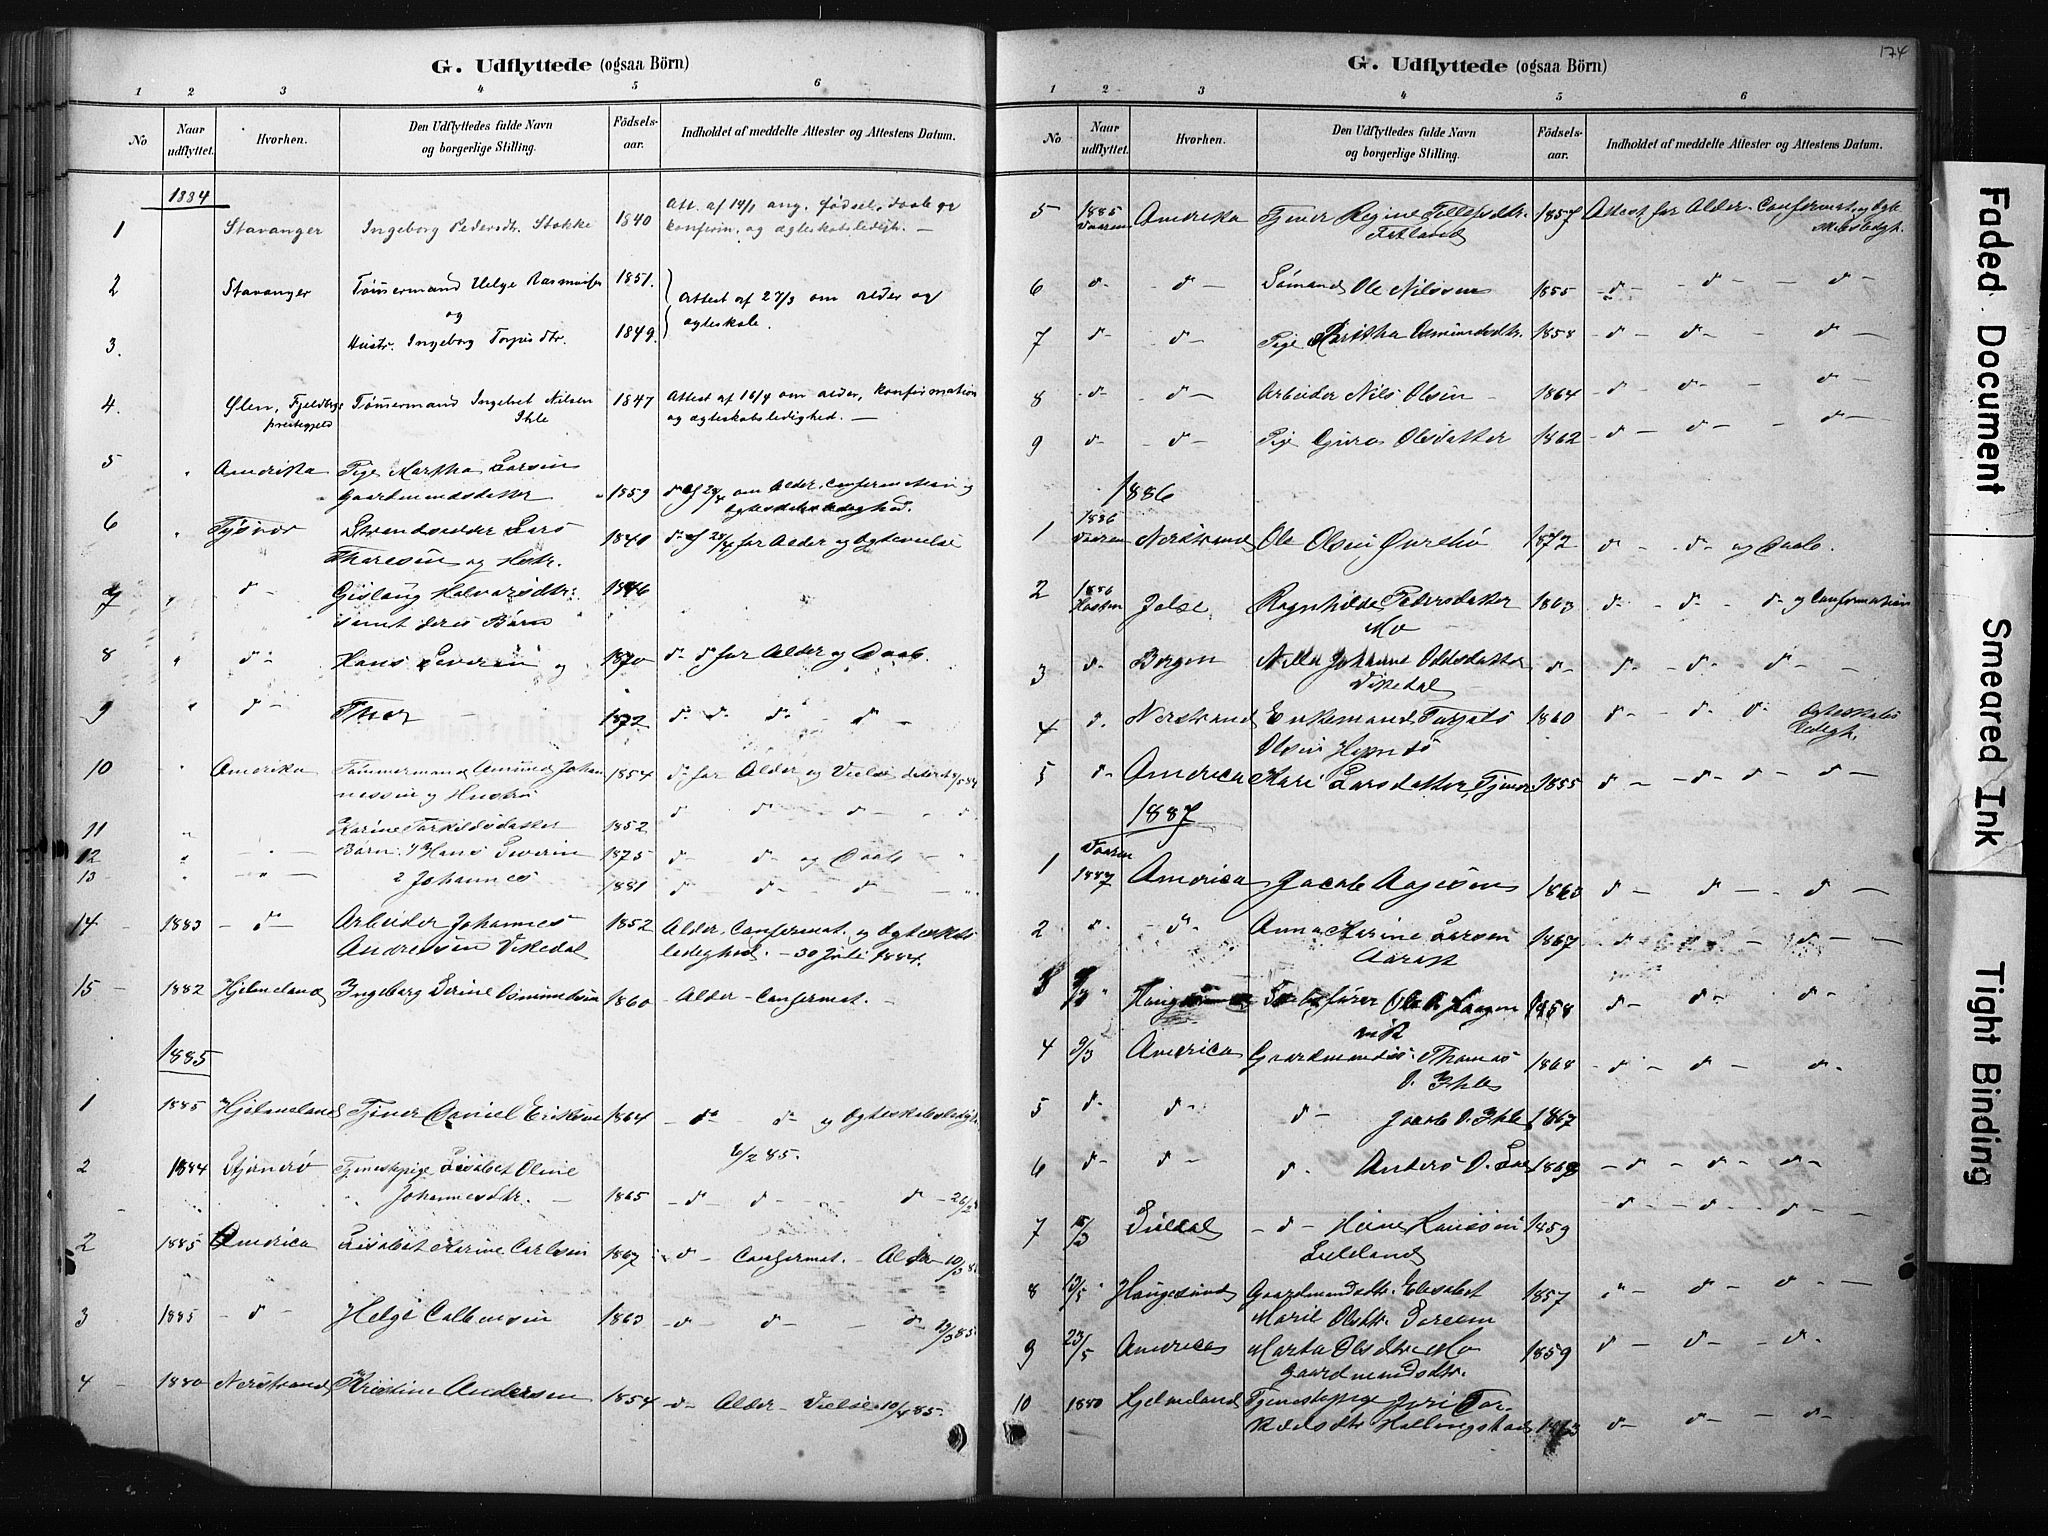 G. Udflyttede (ogsaa Börn)
1 2 3 4 5 6
No Naar udflyttet. Hvorhen. Den Udflyttedes fulde Navn og borgerlige Stilling. Fødsels-aar. Indholdet af meddelte Attester og Attestens Datum.
1884
1 Stavanger Ingeborg Pedersdtr. Stokke 1840 Att. af 14/1 ang. fødsel, daab og
konfirm. og ægteskabsledigh. —
2 Stavanger Tømmermand Helge Rasmussen 1851. Attest af 27/3 om alder og
og ægteskab.
3. Hustr. Ingeborg Torgisdtr. 1849.
4. Ølen, Fjeldbergs Tømmermand Ingebret Nilsen 1847 Attest af 16/4 om alder, konfirmation
præstegjeld Ihle og ægteskabsledighed. —
5 " Amerika Pige Martha Larsen
Gaardmandsdatter 1859 d° af 28/4 om Alder, Confirmation og
Ægteskabsledighed.
6 " Tysvær Strandsidder Lars 1840 d° af 28/4 for Alder og Ægtevielse
Thoresen og Hstr.
7 " d° - Gislaug Halvorsdtr: 1846 "
samt deres Børn
8 " d° - Hans Severin og 1870 d° d° for Alder og Daab.
9 " d° - Thor 1872 d° d° d° - d° -
10 " Amerika Tømmermand Amund Johan 1854 d° for Alder og Vielse
nessen og Hustru
11 " Karine Torkildsdatter 1852 d° d° d° d°
12 " - " - Børn: 1 Hans Severin 1875 d° d° og Daab - "
13 " - " - 2 Johannes 1881 d° d° d° - "
14 - 1883 - d° - Arbeider Johannes 1852 Alder, Confirmat. og Ægteskabs
Andreasen Vikedal ledighed. - 30 Juli 1884.
15 - 1882 Hjelmeland Ingeborg Serine Osmundsen 1860 - Alder - Confirmat. -
1885
1 1885 Hjelmeland Tjener Daniel Eriksen 1864 - d° - d° og Ægteskabsledigh.
6/2 85.
2 1884 Sjernerø Tjenestepige Lisabet Oline
" Johannesdtr. - 1865 - d° d° - d° - 26/2
2 1885 America Lisabet Karine Carlsen 1867 - d° - Confirmat. - Alder 10/3 8
3 1885 - d° - Helge 1863 - d° - d° - - d° 23/3 85
4 - 1880 Nerstrand Kristine Andersen 1854 - d° - Alder - Vielse 10/4 85.
174
G. Udflyttede (ogsaa Börn)
1 2 3 4 5 6
No Naar udflyttet. Hvorhen. Den Udflyttedes fulde Navn og borgerlige Stilling. Fødsels-aar. Indholdet af meddelte Attester og Attestens Datum.
5 1885 Vaaren Amerika Tjener Regine Tollefsdtr. 1857 Attest for Alder, Confirmat. og Ægte
skabsledigh.
6 d° - d° - Sømand Ole Nilsen 1855 - d° - - d° - - d° -
7 d° - d° - Pige Martha Osmundsdtr. 1858 - d° - d° - d° -
8 d° - d° - Arbeider Nils Olsen - 1864 - d° - d° - d° -
9 d° - d° - Pige Gjuro Olsdatter 1862 - d° - d° - - d° -
1886
1 1886 Vaaren Nerstrand Ole Olsen 1872 d° - d° - og Daab.
2 1886 Høsten Jelse Ragnhilde Pedersdatter 1863 d° - d° - d° og Confirmation
Mo
3 d° - Bergen Nella Johanne Oddsdatter d° - d° - d° - d° - -
Vikedal
4 d° Nerstrand Enkemand Torgils 1860 d° - d° d° - Ægteskabs
Olsen ledigh.
5 d° - America Kari Larsdatter, Tjener 1855 d° - - d° - d° - d° -
1887
1 Vaaren 1887 America Jacob Aagesen 1863 d° - d° - - d° -
2 d° " Anna Karine Larsen 1867 - d° - - d° - -
3 " 1858 d° - d° - d° -
4 9/3 America Gaardmandss. Thomas 1868 - d° - d° - d°
O. Ihle
5 d° d° d° - Jacob O. Ihle 1867
6 d° d° d° Anders O. - d° - d° - d° -
7 15/3 - d° - 1859 d° - d° - d° - d° -
8 13/5 Haugesund Gaardmandsdtr. Elisabet 1857 " - d° - d° - -
Marie Olsdtr.
9 23/5 America Marta Olsdtr. Mo 1859 d° - d° - d° -
Gaardmandsdtr.
10 1880 Hjelmeland Tjenestepige Tor-
d° - d° - d° -
Faded Document
Smeared Ink
Tight Binding